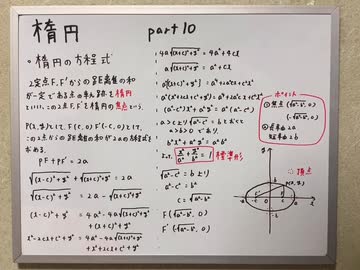 楕円 part10
・楕円の方程式
2定点F,F'からの距離の和
が一定である点の軌跡を楕円
といい、この2点F,F'を楕円の焦点という。
P(x,y)として、F(c,0)F'(-c,0)として、
この2点からの距離の和が2aの方程式を
求める。
PF+PF'=2a
√(x-c)²+y² + √(x+c)²+y² = 2a
√(x-c)²+y² = 2a - √(x+c)²+y²
(x-c)²+y² = 4a² - 4a√(x+c)²+y²
+(x+c)²+y²
x²-2xc+c²+y² = 4a² - 4a√(x+c)²+y²
+x²+2xc+c²+y²
4a√(x+c)²+y² = 4a²+4cx
a√(x+c)²+y² = a²+cx
a²{(x+c)²+y²} = a⁴+2a²cx+c²x²
(a²-c²)x²+a²y² = a²(a²-c²)
a>c より √a²-c² = b とおくと
a>b>0 であり、
b²x²+a²y² = a²b²
よって、x²/a² + y²/b² = 1 標準形
√a²-c² = b より
a²-c² = b²
c = √a²-b²
F(√a²-b², 0)
F'(-√a²-b², 0)
ポイント
① 焦点 (√a²-b², 0)
(-√a²-b², 0)
② 長軸 2a
短軸 2b
∴ 頂点
P(x,y)